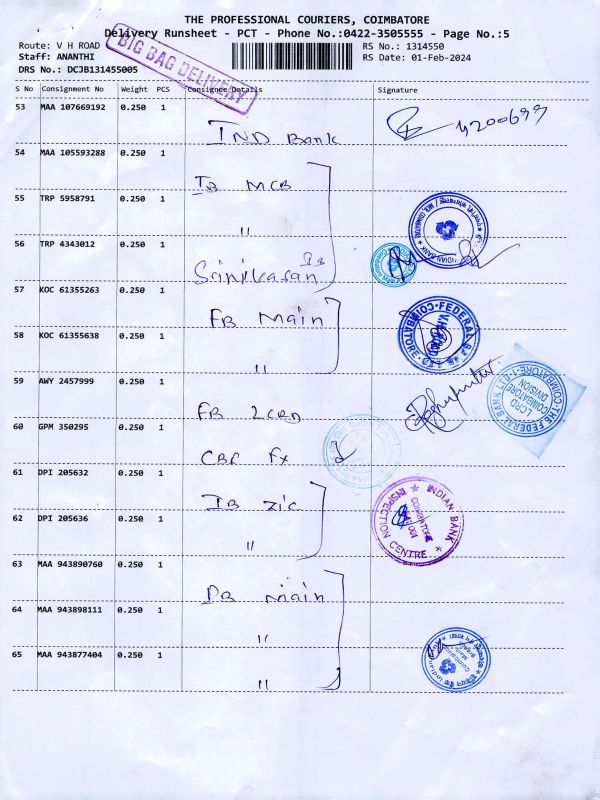 THE PROFESSIONAL COURIERS, COIMBATORE
Delivery Runsheet - PCT - Phone No.:0422-3505555 - Page No.:5
Route: V H ROAD
RS No.: 1314550
Staff: ANANTHI
RS Date: 01-Feb-2024
DRS No.: DCJB131455005
BIG BAG DELIVERY
S No Consignment No Weight PCS Consignee/Details Signature
53 MAA 107669192 0.250 1
IND Bank
54 MAA 105593288 0.250 1
IB MCB
55 TRP 5958791 0.250 1
"
56 TRP 4343012 0.250 1
Srinivasan
57 KOC 61355263 0.250 1
FB Main
58 KOC 61355638 0.250 1
"
59 AWY 2457999 0.250 1
FB LCRD
60 GPM 350295 0.250 1
61 DPI 205632 0.250 1
IB ZIC
62 DPI 205636 0.250 1
"
63 MAA 943890760 0.250 1
Main
64 MAA 943898111 0.250 1
"
65 MAA 943877404 0.250 1
"
THE FEDERAL BANK LTD
LCRD
COIMBATORE
DIVISION
INDIAN BANK
INSPECTION CENTRE
COIMBATORE